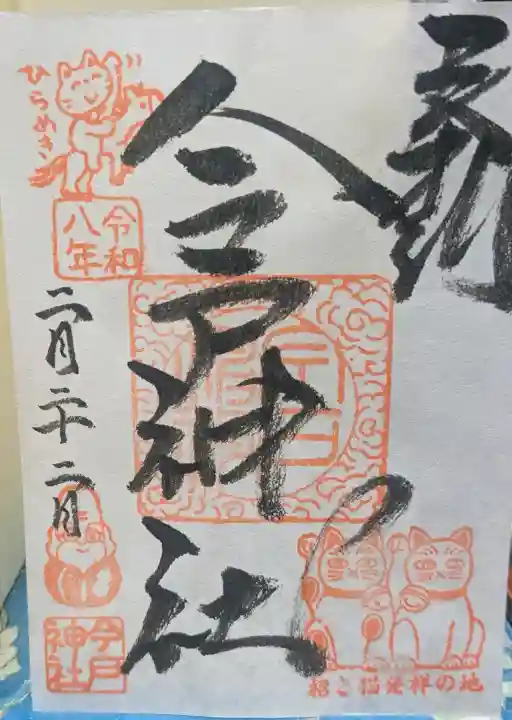 今戸神社
ひらめき
令和
八年
二月二十二日
今戸
神社
招き猫発祥の地